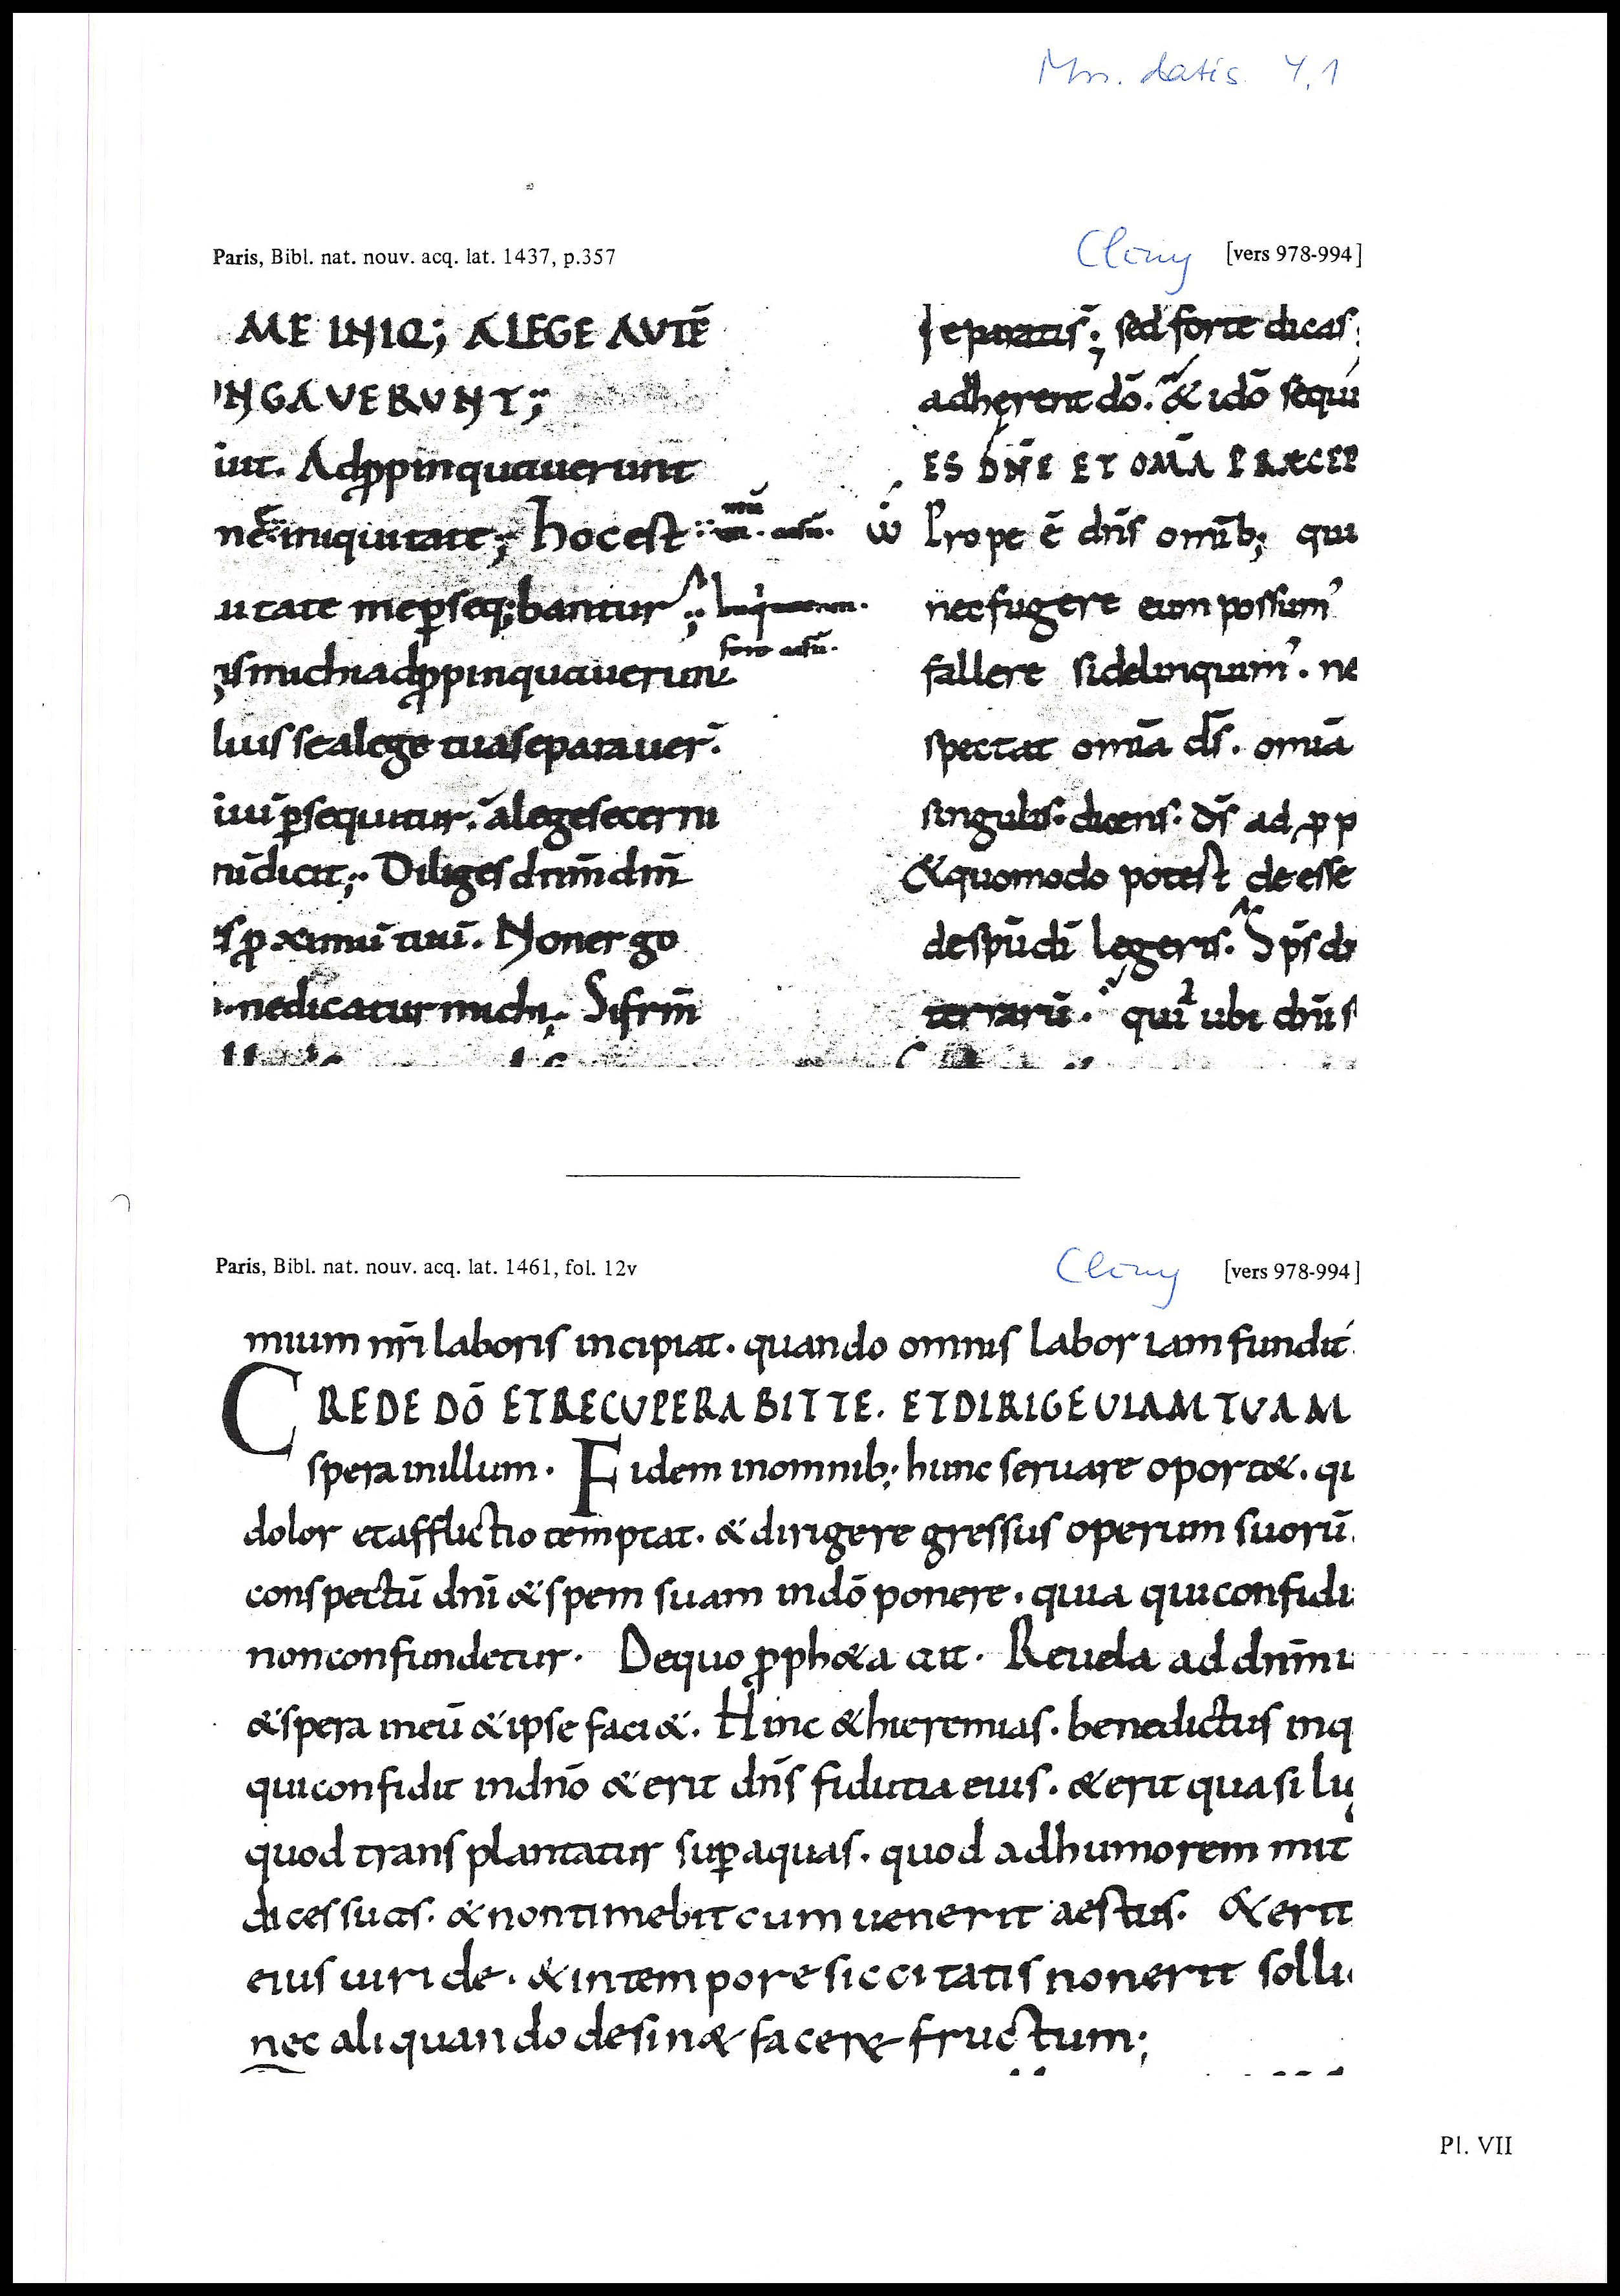 Mss. datés 4,1
Paris, Bibl. nat. nouv. acq. lat. 1437, p.357
Cluny [vers 978-994]
ME INIQ; A LEGE AUTĒ
NGAVERUNT;
iut. Adꝓpinquauerunt
iniquitate; hoc est
utate me ꝑseq;bantur
michi adꝓpinquauerunt
luis se a lege tua separauer̄.
ꝑsequitur. a lege secerni
dicit; Diliges dnm̄ dm̄
ꝓximū tuū. Non ergo
ne dicatur michi; Si frm̄
separatis; sed forte dicas
adhęrent dō. & idō sequi
ES DN̄E ET OMA PRÆCEP
Prope ē dn̄s omīb; qui
nec fugere eum possum᾽
fallere si delinquim᾽. ne
spectat omīa ds̄. omīa
singulis. dicens. Ds̄ ad ꝓp
& quomodo potest deesse
legeris. Sps̄ dn
terrarū. ubi dn̄s
Paris, Bibl. nat. nouv. acq. lat. 1461, fol. 12v
Cluny [vers 978-994]
mium nr̄i laboris incipiat. quando omnis labor iam fundit
CREDE DŌ ET RECUPERABIT TE. ET DIRIGE UIAM TUAM
spera in illum. Fidem in omnib; hunc seruare oport&. qi
dolor et afflictio temptat. & dirigere gressus operum suorū
conspectū dnī & spem suam in dō ponere. quia qui confidi
non confundetur. De quo ꝓph&a ait. Reuela ad dnm̄ u
& spera in eū & ipse faci&. Hinc & hieremias. benedictus inq
qui confidit in dn̄o & erit dn̄s fidutia eius. & erit quasi lig
quod transplantatur suꝑ aquas. quod ad humorem mit
dices suas. & non timebit cum uenerit aestus. & erit
eius uiride. & in tempore siccitatis non erit solli
nec aliquando desin& facere fructum;
Pl. VII